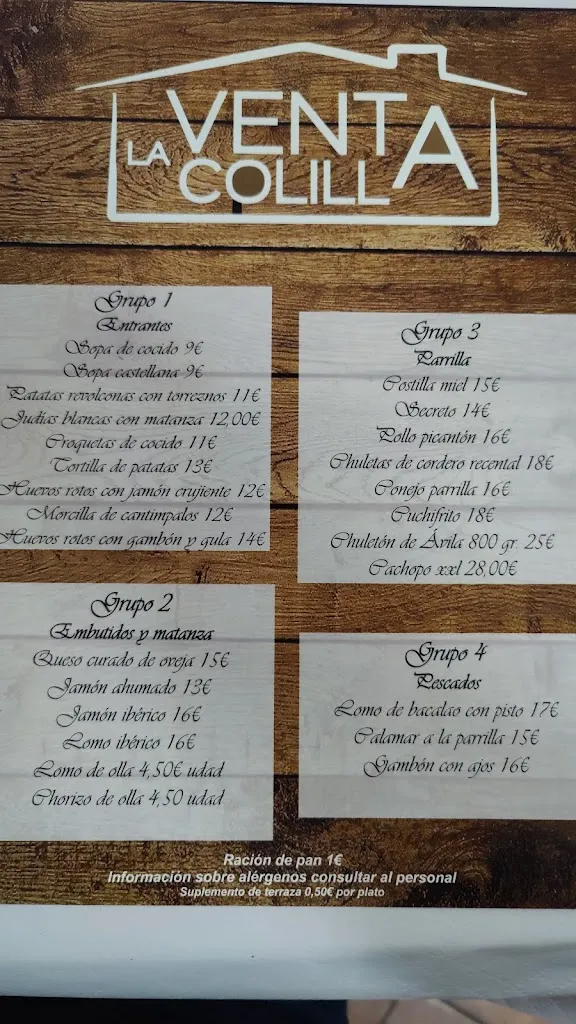 LA VENTA
COLILLA
Grupo 1
Entrantes
Sopa de cocido 9€
Sopa castellana 9€
Patatas revolconas con torreznos 11€
Judías blancas con matanza 12,00€
Croquetas de cocido 11€
Tortilla de patatas 13€
Huevos rotos con jamón crujiente 12€
Morcilla de cantimpalos 12€
Huevos rotos con gambón y gula 14€
Grupo 2
Embutidos y matanza
Queso curado de oveja 15€
Jamón ahumado 13€
Jamón ibérico 16€
Lomo ibérico 16€
Lomo de olla 4,50€ udad
Chorizo de olla 4,50 udad
Grupo 3
Parrilla
Costilla miel 15€
Secreto 14€
Pollo picantón 16€
Chuletas de cordero recental 18€
Conejo parrilla 16€
Cuchifrito 18€
Chuletón de Ávila 800 gr. 25€
Cachopo xxl 28,00€
Grupo 4
Pescados
Lomo de bacalao con pisto 17€
Calamar a la parrilla 15€
Gambón con ajos 16€
Ración de pan 1€
Información sobre alérgenos consultar al personal
Suplemento de terraza 0,50€ por plato